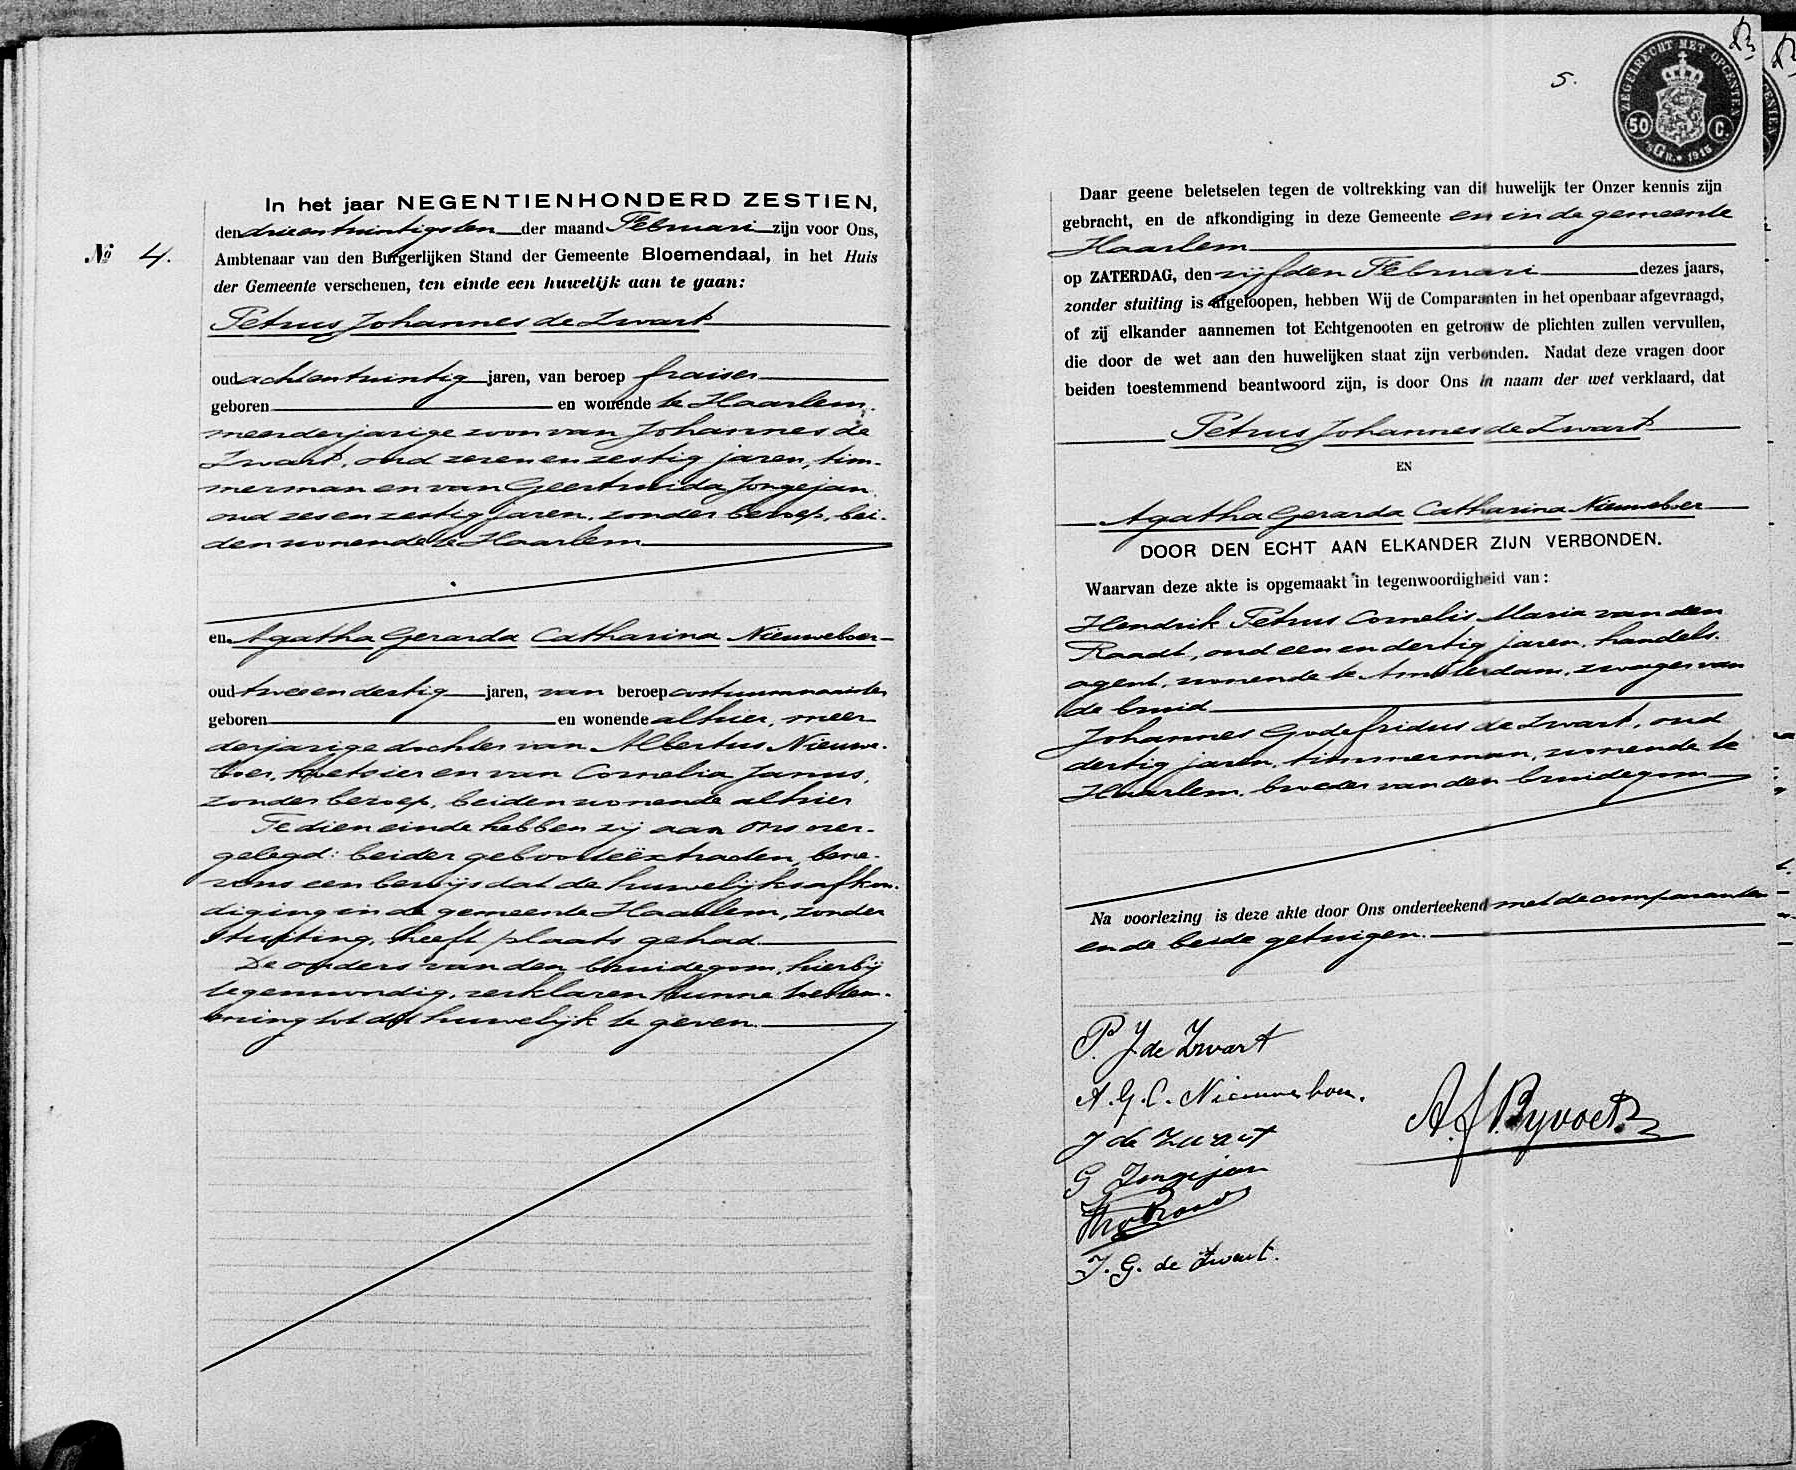 In het jaar NEGENTIENHONDERD ZESTIEN,
den drieentwintigsten der maand Februari zijn voor Ons,
No 4.
Ambtenaar van den Burgerlijken Stand der Gemeente Bloemendaal, in het Huis
der Gemeente verschenen, ten einde een huwelijk aan te gaan:
Petrus Johannes de Zwart
oud achtentwintig jaren, van beroep fraiser
geboren en wonende te Haarlem,
meerderjarige zoon van Johannes de
Zwart, oud zevenenzestig jaren, tim-
merman en van Geertruida Jongejan,
oud zesenzestig jaren, zonder beroep, bei-
den wonende te Haarlem
en Agatha Gerarda Catharina Nieuweboer
oud tweeendertig jaren, van beroep costuumnaaister
geboren en wonende alhier, meer
derjarige dochter van Albertus Nieuwe-
boer, koetsier en van Cornelia Janus,
zonder beroep, beiden wonende alhier
Te dien einde hebben zij aan Ons over-
gelegd: beider geboorteëxtracten, bene-
vens een bewijs dat de huwelijksafkon-
diging in de gemeente Haarlem, zonder
stuiting, heeft plaats gehad.
De ouders van den bruidegom, hierbij
tegenwoordig, verklaren hunne toestem-
ming tot dit huwelijk te geven.
5.
ZEGELRECHT MET OPCENTEN
50 C.
Daar geene beletselen tegen de voltrekking van dit huwelijk ter Onzer kennis zijn
gebracht, en de afkondiging in deze Gemeente en in de gemeente
Haarlem
op ZATERDAG, den vijfden Februari dezes jaars,
zonder stuiting is afgeloopen, hebben Wij de Comparanten in het openbaar afgevraagd,
of zij elkander aannemen tot Echtgenooten en getrouw de plichten zullen vervullen,
die door de wet aan den huwelijken staat zijn verbonden. Nadat deze vragen door
beiden toestemmend beantwoord zijn, is door Ons in naam der wet verklaard, dat
Petrus Johannes de Zwart
EN
Agatha Gerarda Catharina Nieuweboer
DOOR DEN ECHT AAN ELKANDER ZIJN VERBONDEN.
Waarvan deze akte is opgemaakt in tegenwoordigheid van:
Hendrik Petrus Cornelis Maria van den
Raadt, oud een en dertig jaren, handels-
agent, wonende te Amsterdam, zwager van
de bruid
Johannes Godefridus de Zwart, oud
dertig jaren, timmerman, wonende te
Haarlem, broeder van den bruidegom
Na voorlezing is deze akte door Ons onderteekend met de comparanten
en de beide getuigen.
P. J de Zwart
A. G. C. Nieuweboer.
A. J. Byvoet
J de Zwart
G Jongejan
J. G. de Zwart.